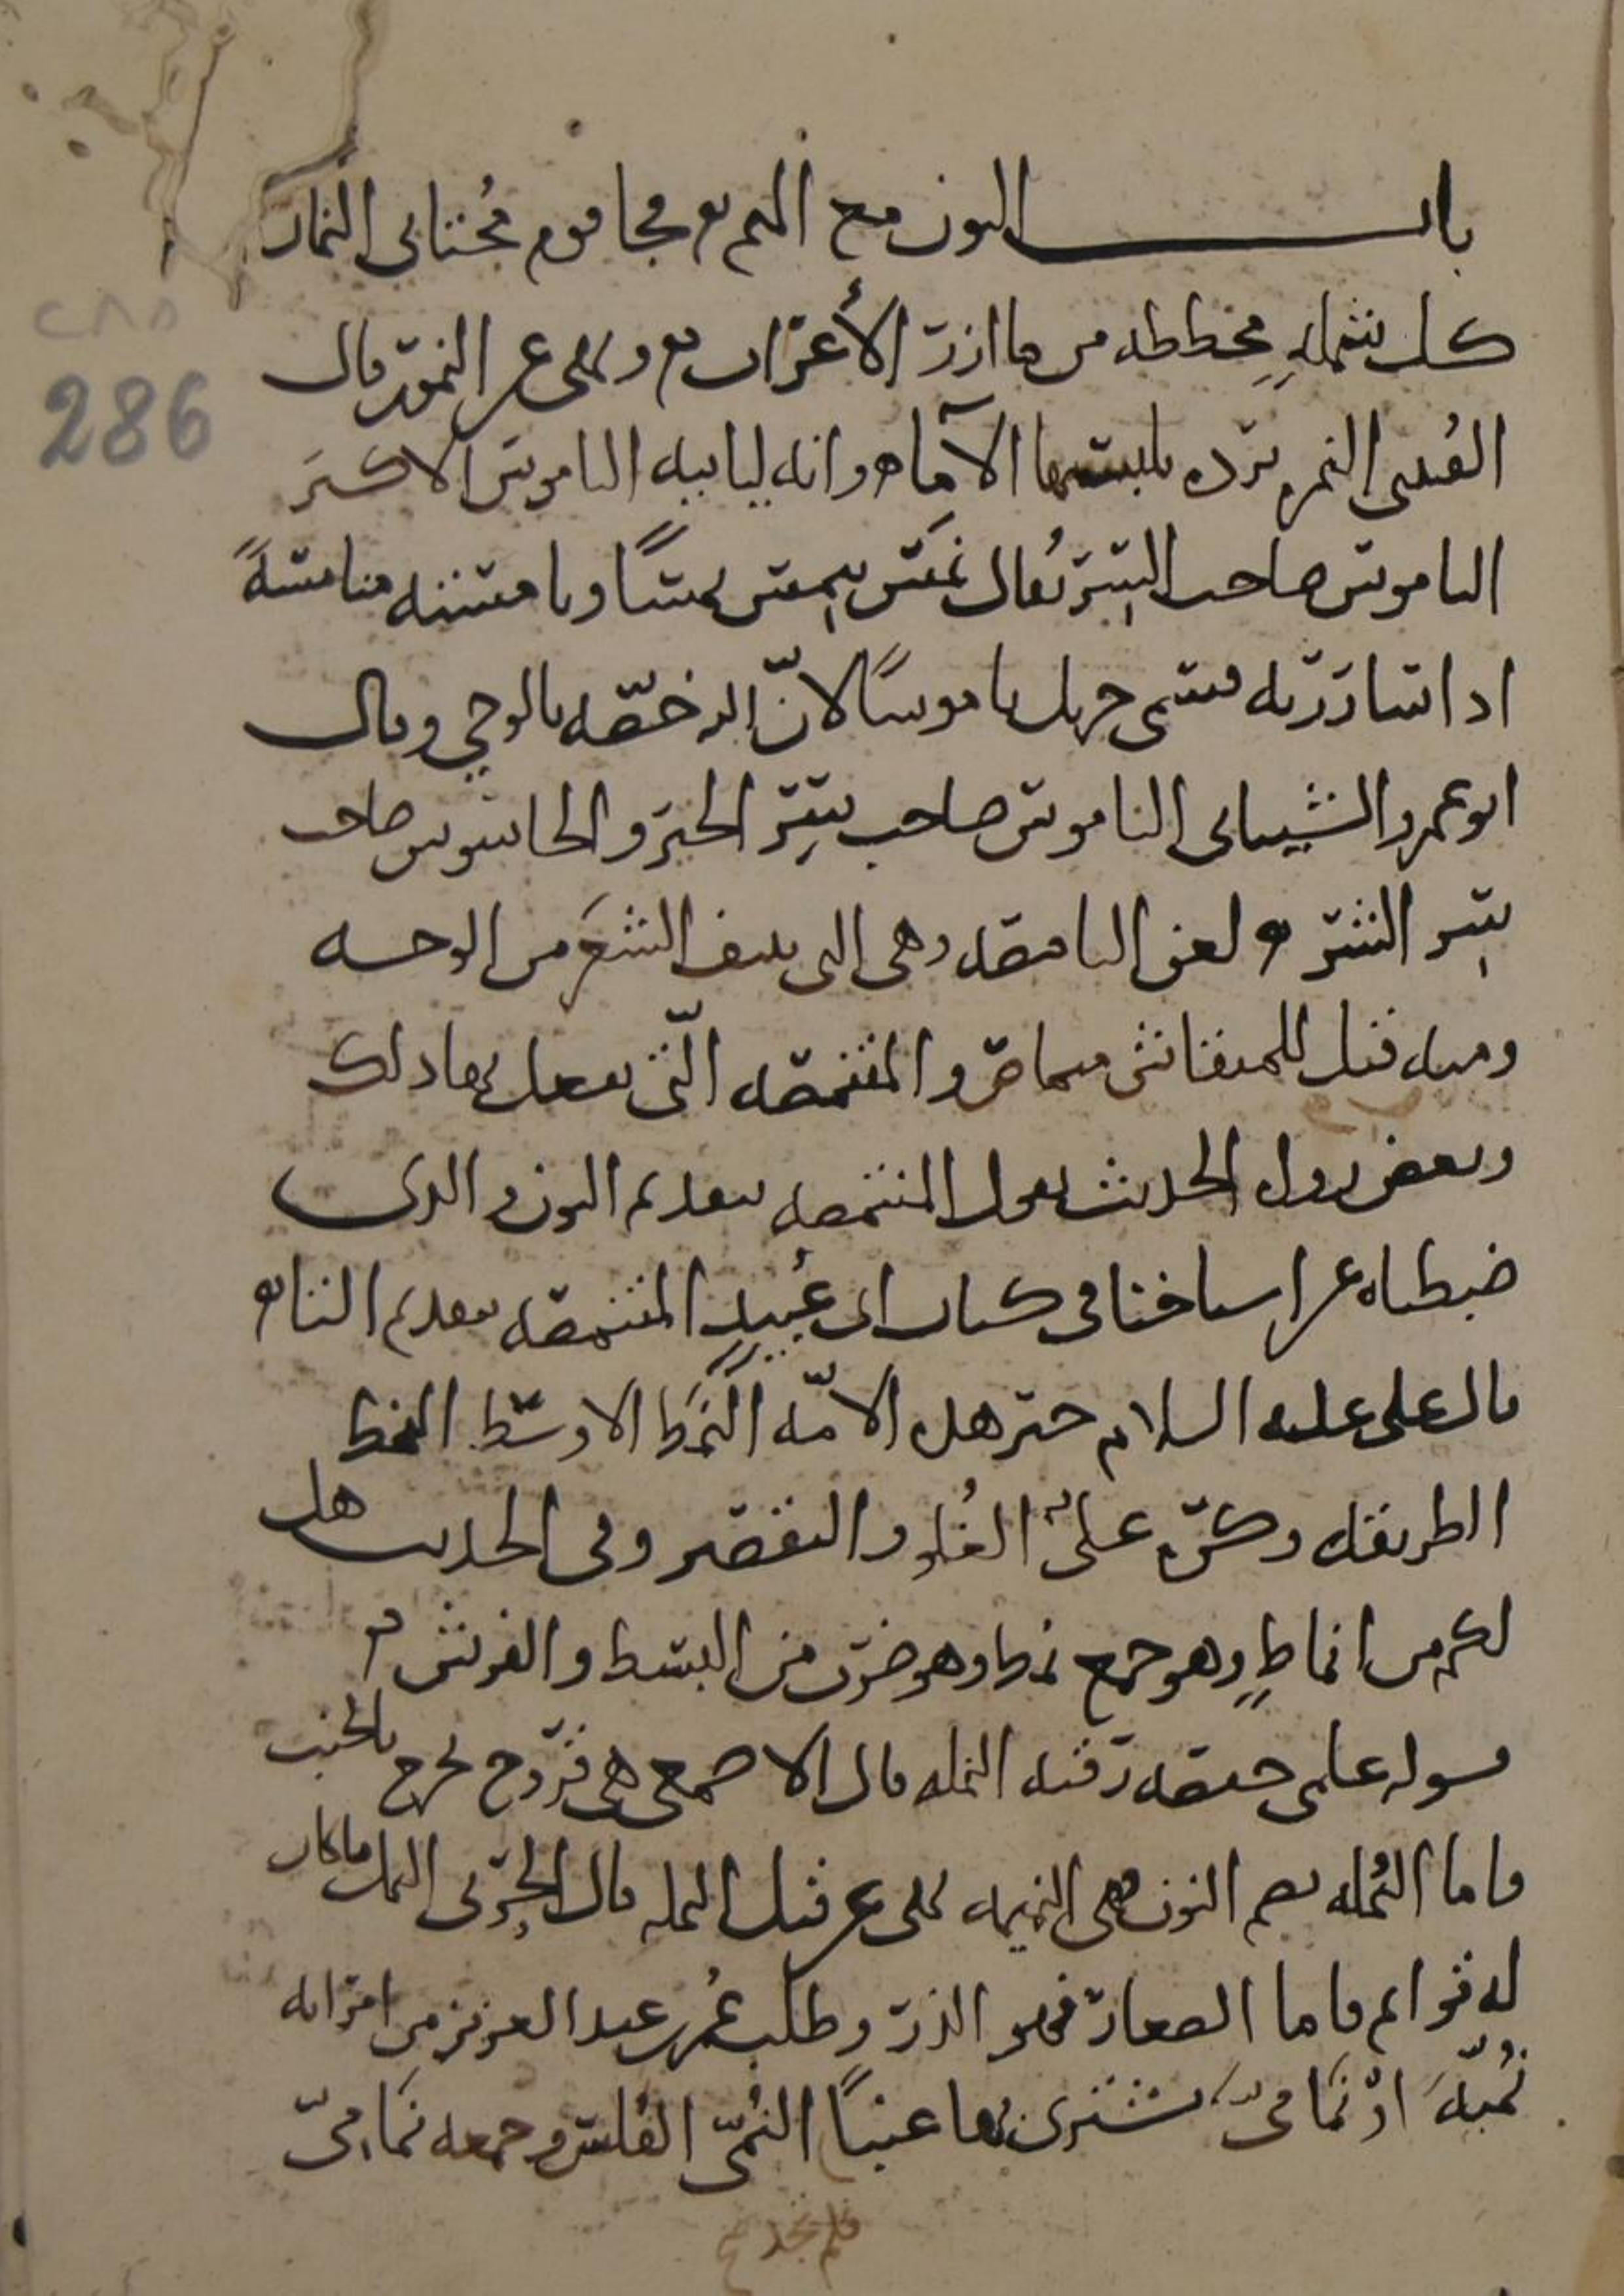 باب النون مع الميم فجا قوم مجتابي النمار
كل شملةٍ مخططه من مآزر الأعراب ونهى عن النمور قال
القتبي النمره برده يلبسها الإماء وانه ليأتيه الناموس الاكبر
الناموس صاحب السر يُقال نَمَسَ ينمِس نمسًا ونامسته منامسةً
اذا ساررته فسمى جبريل ناموسًا لانّ الله خصّه بالوحي وقال
ابو عمرو الشيباني الناموس صاحب سِرّ الخير والجاسوس صاحب
سِر الشر ولعن النامصه وهي التي تنتف الشعَر من الوجه
ومنه قيل للمنقاش منماص والمتنمصه الّتي يفعل بها ذلك
وبعض رواه الحديث يقول المنتمصه بتقديم النون والذي
ضبطناه عن اشياخنا في كتاب ابي عُبيدٍ المتنمصه بتقديم التاء
قال علي عليه السلام خير هذه الامّه النَّمَط الاوسط النمط
الطريقه وكره عليٌّ الغُلو والتقصير وفي الحديث هل
لكم من انماطٍ وهو جمع نمط وهو ضرب من البسط والفرش
قوله علمي حفصه رقيه النمله قال الاصمعي هي قروح تخرج بالجنب
فاما النُمله بضم النون فهي النميمه نهى عن قتل النمله قال الحربي النمل ما كان
له قوائم فاما الصغار فهو الذر وطلب عُمر بن عبد العزيز من امراته
نُمّيّةً اوْ نَمَامِيَّ يشتري بها عنبًا النُمّيّ الفلس وجمعه نَمَامِيّ
فلم يجد
286